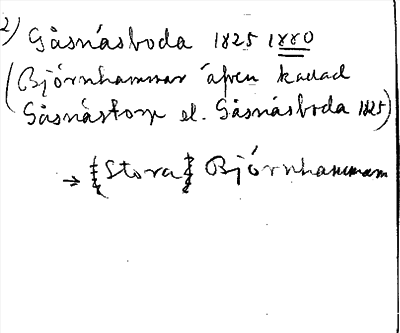 2) Gåsnäsboda 1825 1880
(Björnhammar äfven kallad
Gåsnästorp el. Gåsnäsboda 1825)
→ {Stora} Björnhammar